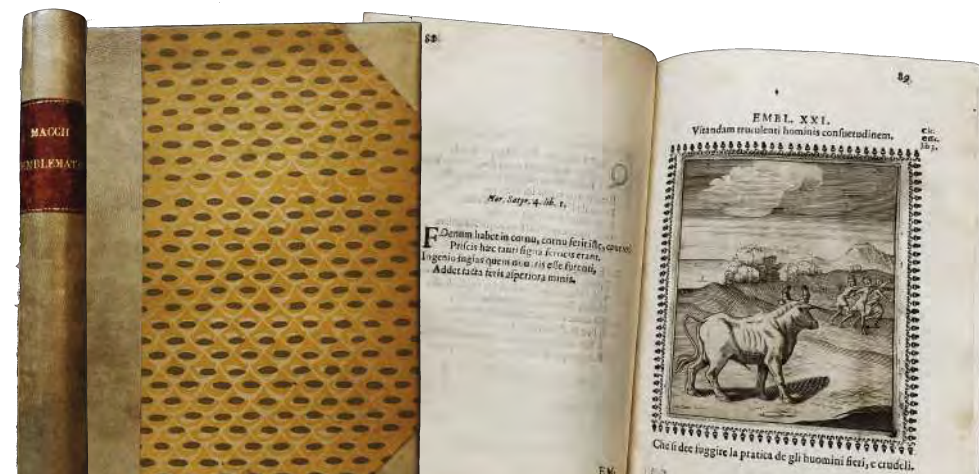 MACCII
EMBLEMATA
88
Hor. Satyr. 4. lib. 1.
FOenum habet in cornu, cornu ferit iste,
Priscis hæc tauri signa ferocis erant.
Ingenio fugias quem esse furenti,
Addet facta feris asperiora minis.
89
EMBL. XXI.
Vitandam truculenti hominis consuetudinem.
Cic.
offic.
lib 3.
Che si dee fuggire la pratica de gli huomini fieri, e crudeli.